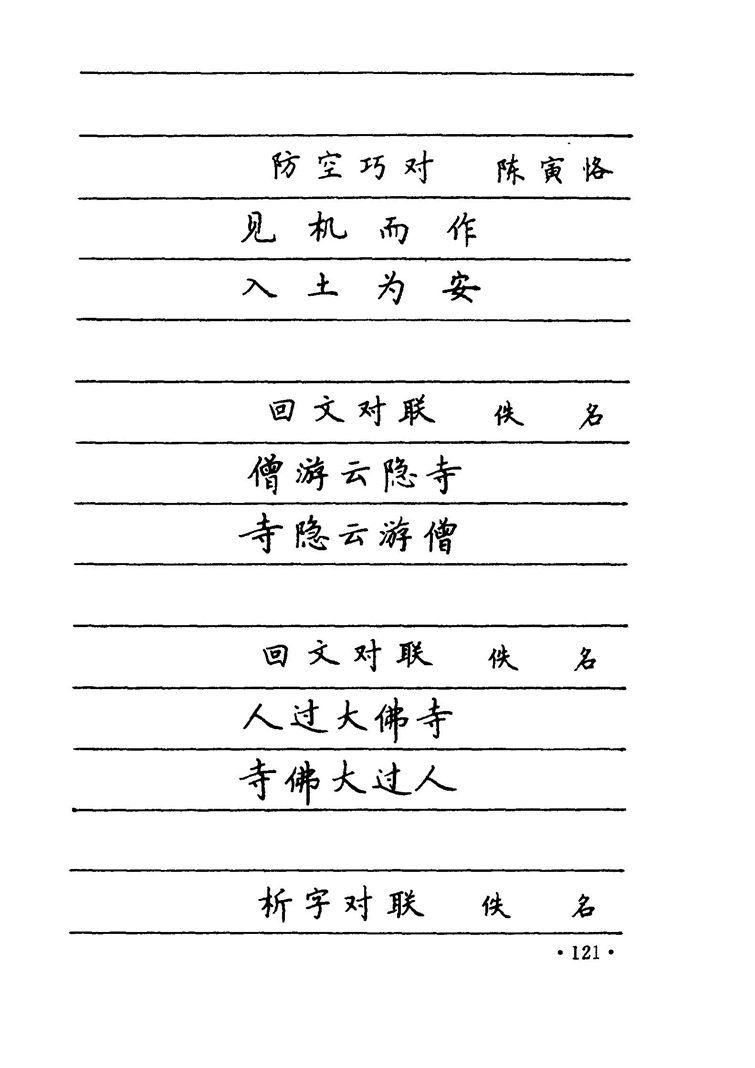 防空巧对 陈寅恪
见机而作
入土为安
回文对联 佚名
僧游云隐寺
寺隐云游僧
回文对联 佚名
人过大佛寺
寺佛大过人
析字对联 佚名
·121·